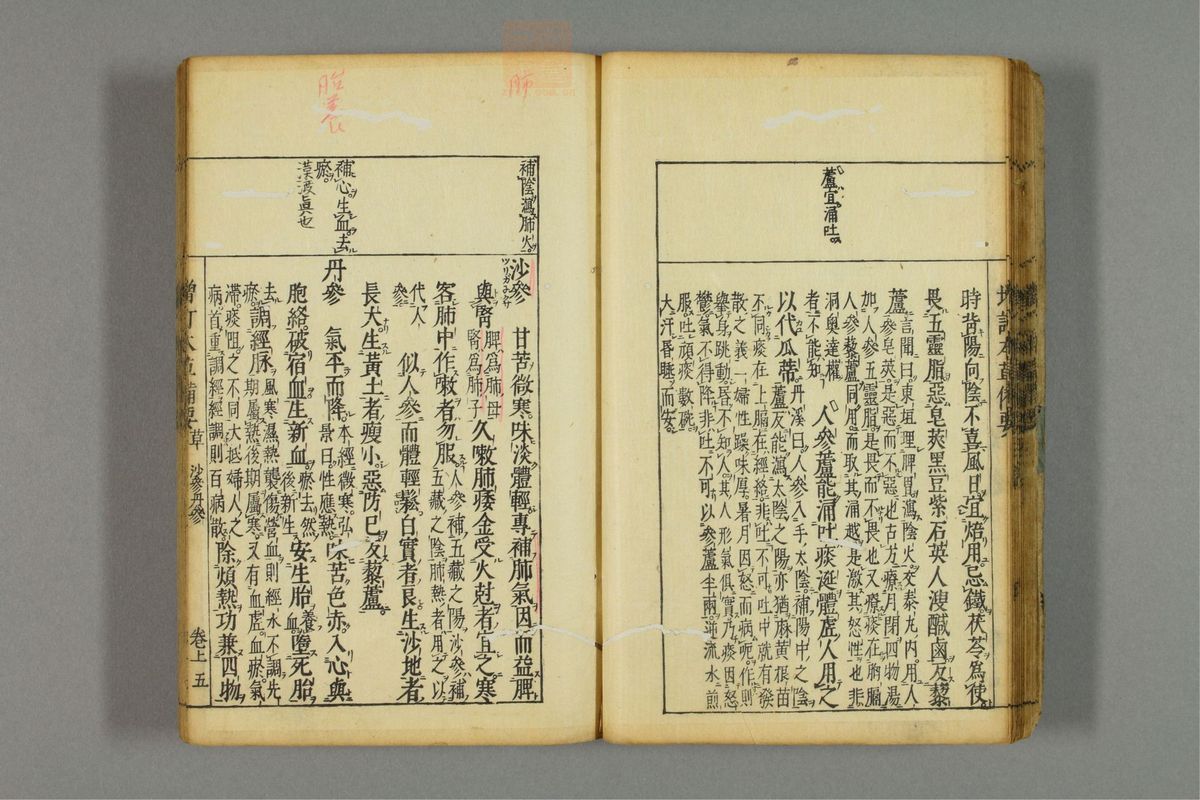 蘆宜涌吐
時背陽向陰不喜風日宜焙用忌鐵茯苓為使
畏五靈脂惡皂莢黑豆紫石英人溲鹹鹵反藜
蘆言聞曰東垣理脾胃瀉陰火交泰丸內用人
參皂莢是惡而不惡也古方療月閉四物湯
加人參五靈脂是畏而不畏也又療痰在胸膈
人參藜蘆同用而取其涌越是激其怒性也非
洞奧達權
者不能知
人參蘆能涌吐痰涎體虛人用之
以代瓜蒂丹溪曰人參入手太陰補陽中之陰
蘆反能瀉太陰之陽亦猶麻黃根苗
不同痰在上膈在經絡非吐不可吐中就有發
散之義一婦性躁味厚暑月因怒而病呃作則
舉身跳動昏不知人其人形氣俱實乃痰因怒
鬱氣不得降非吐不可以參蘆半兩逆流水煎
服吐頑痰數碗
大汗昏睡而安
肺
胎養
補陰瀉肺火
補心生血去
瘀
沙參
ツリガネニンジン
甘苦微寒味淡體輕專補肺氣因而益脾
與腎脾為肺母
腎為肺子
久嗽肺痿金受火尅者宜之寒
客肺中作嗽者勿服人參補五藏之陽沙參補
五藏之陰肺熱者用之以
代人
參
似人參而體輕鬆白實者良生沙地者
長大生黃土者瘦小惡防已反藜蘆
丹參
氣平而降本經微寒弘
景曰性應熱
味苦色赤入心與
胞絡破宿血生新血瘀去然
後新生
安生胎養
血
墮死胎
去
瘀
調經脉風寒濕熱襲傷營血則經水不調先
期屬熱後期屬寒又有血虛血瘀氣
滯痰阻之不同大抵婦人之
病首重調經經調則百病散
除煩熱功兼四物
增訂本草備要
草
沙參丹參
卷上
五